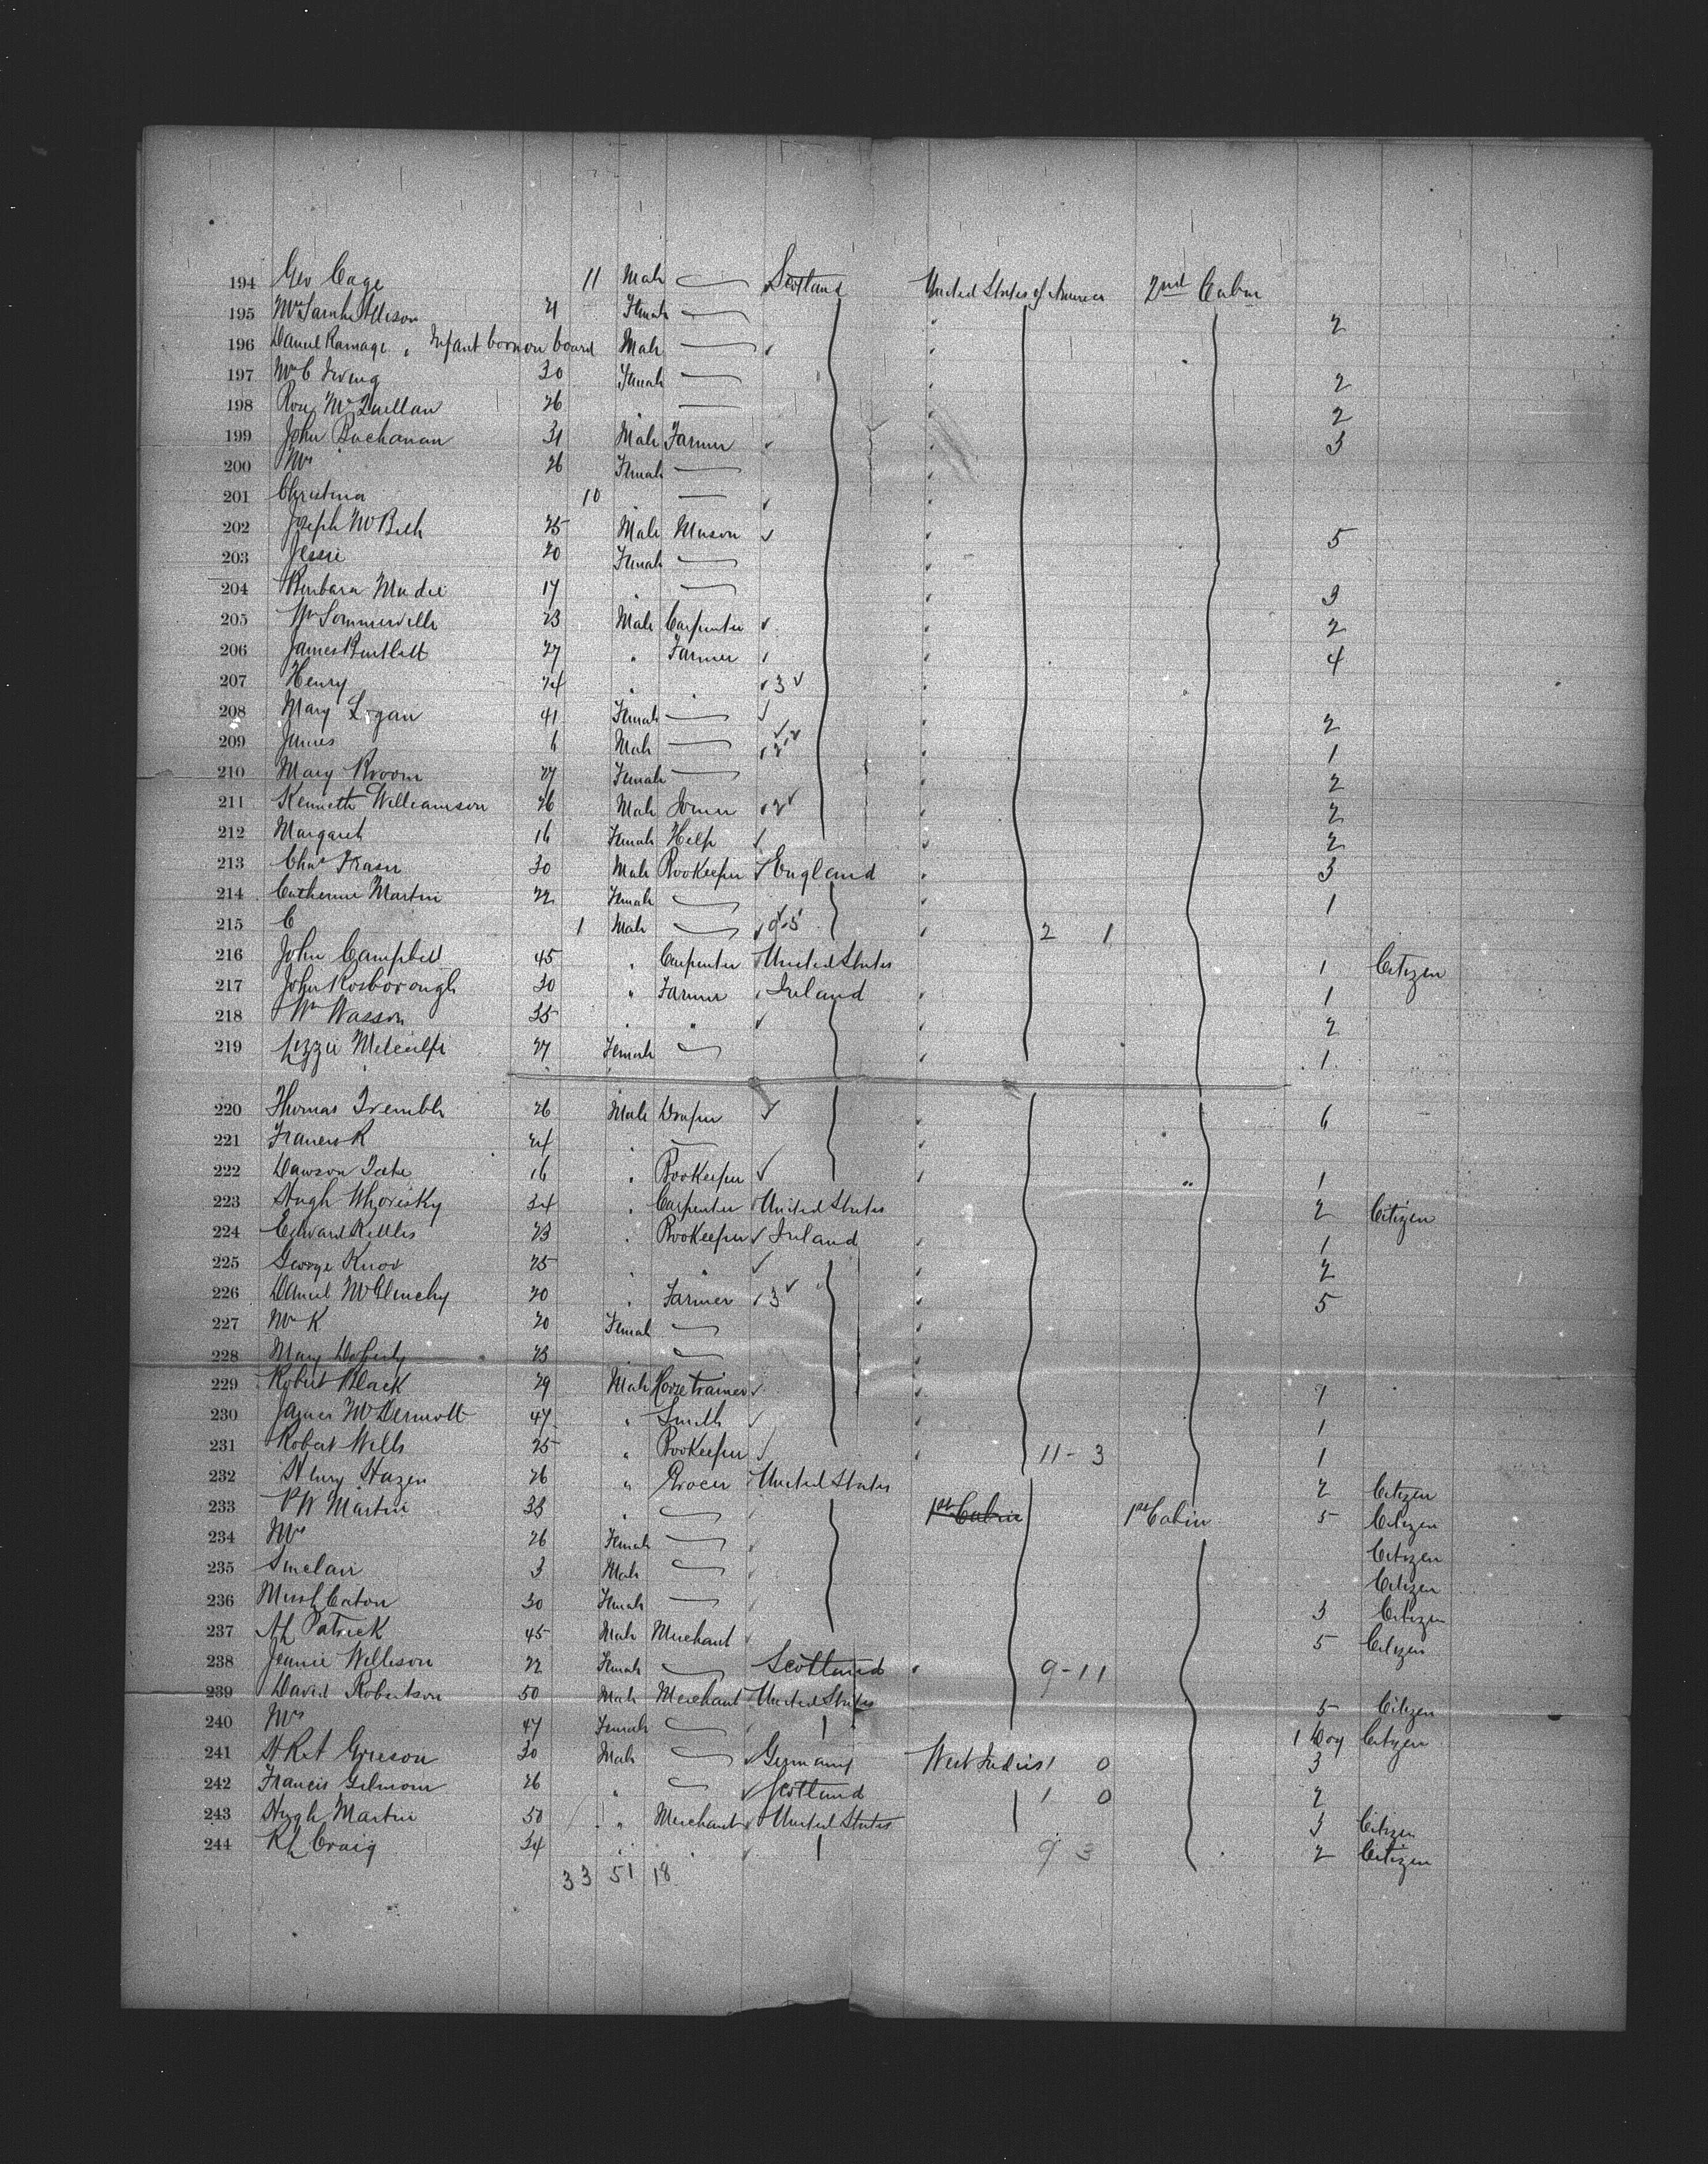 194 Geo Cage 11 Male Scotland United States of America 2nd Cabin
195 Mrs Sarah Allison 21 Female " 2
196 Daniel Ramage, Infant born on board Male "
197 Mrs C Irving 30 Female " 2
198 Rose McQuillan 26 " " 2
199 John Buchanan 31 Male Farmer " 3
200 Mrs " 26 Female "
201 Christina 10 " "
202 Joseph McBeth 25 Male Mason " 5
203 Jessie 20 Female "
204 Barbara Mudie 17 " " 3
205 Wm Sommerville 23 Male Carpenter " 2
206 James Bartlett 27 " Farmer " 4
207 Henry 24 " " 3 "
208 Mary Logan 41 Female 2
209 James 6 Male 2 " 1
210 Mary Broom 27 Female " 2
211 Kenneth Williamson 26 Male Joiner 2 " 2
212 Margaret 16 Female Help " 2
213 Chas Fraser 30 Male Bookeeper England " 3
214 Catherine Martin 22 Female 1
215 C 1 Male " 2 1
216 John Campbell 45 " Carpenter United States 1 Citizen
217 John Rosborough 30 " Farmer Ireland " 1
218 Wm Wasson 35 " " " 2
219 Lizzie Metcalfe 27 Female " 1
220 Thomas Tremble 26 Male Draper " 6
221 Francis R 24 " "
222 Dawson Tate 16 " Bookeeper " 1
223 Hugh Whoriskey 34 " Carpenter United States 2 Citizen
224 Edward 23 " Bookeeper Ireland " 1
225 George Knox 25 " " " 2
226 Daniel McGlinchy 20 " Farmer 3 " 5
227 Mrs K 20 Female "
228 Mary Doherty 23 " "
229 Robert Black 29 Male Horse trainer " 7
230 James McDermott 47 " Smith " 1
231 Robert Wells 25 " Bookeeper " 11 - 3 1
232 Henry Hazen 26 " Grocer United States 2 Citizen
233 P W Martin 33 " 1st Cabin 1st Cabin 5 Citizen
234 Mrs 26 Female Citizen
235 Sinclair 3 Male Citizen
236 Miss L Caton 30 Female 3 Citizen
237 Patrick 45 Male Merchant 5 Citizen
238 Jeanie Willison 22 Female Scotland " 9 - 11
239 David Robertson 50 Male Merchant United States 5 Citizen
240 Mrs 47 Female 1 Dog Citizen
241 Grieson 30 Male Germany West Indies 1 0 3
242 Francis Gilmour 26 " Scotland 1 0 2
243 Hugh Martin 50 " Merchant United States 3 Citizen
244 Craig 34 " " 9 3 2 Citizen
33 51 18